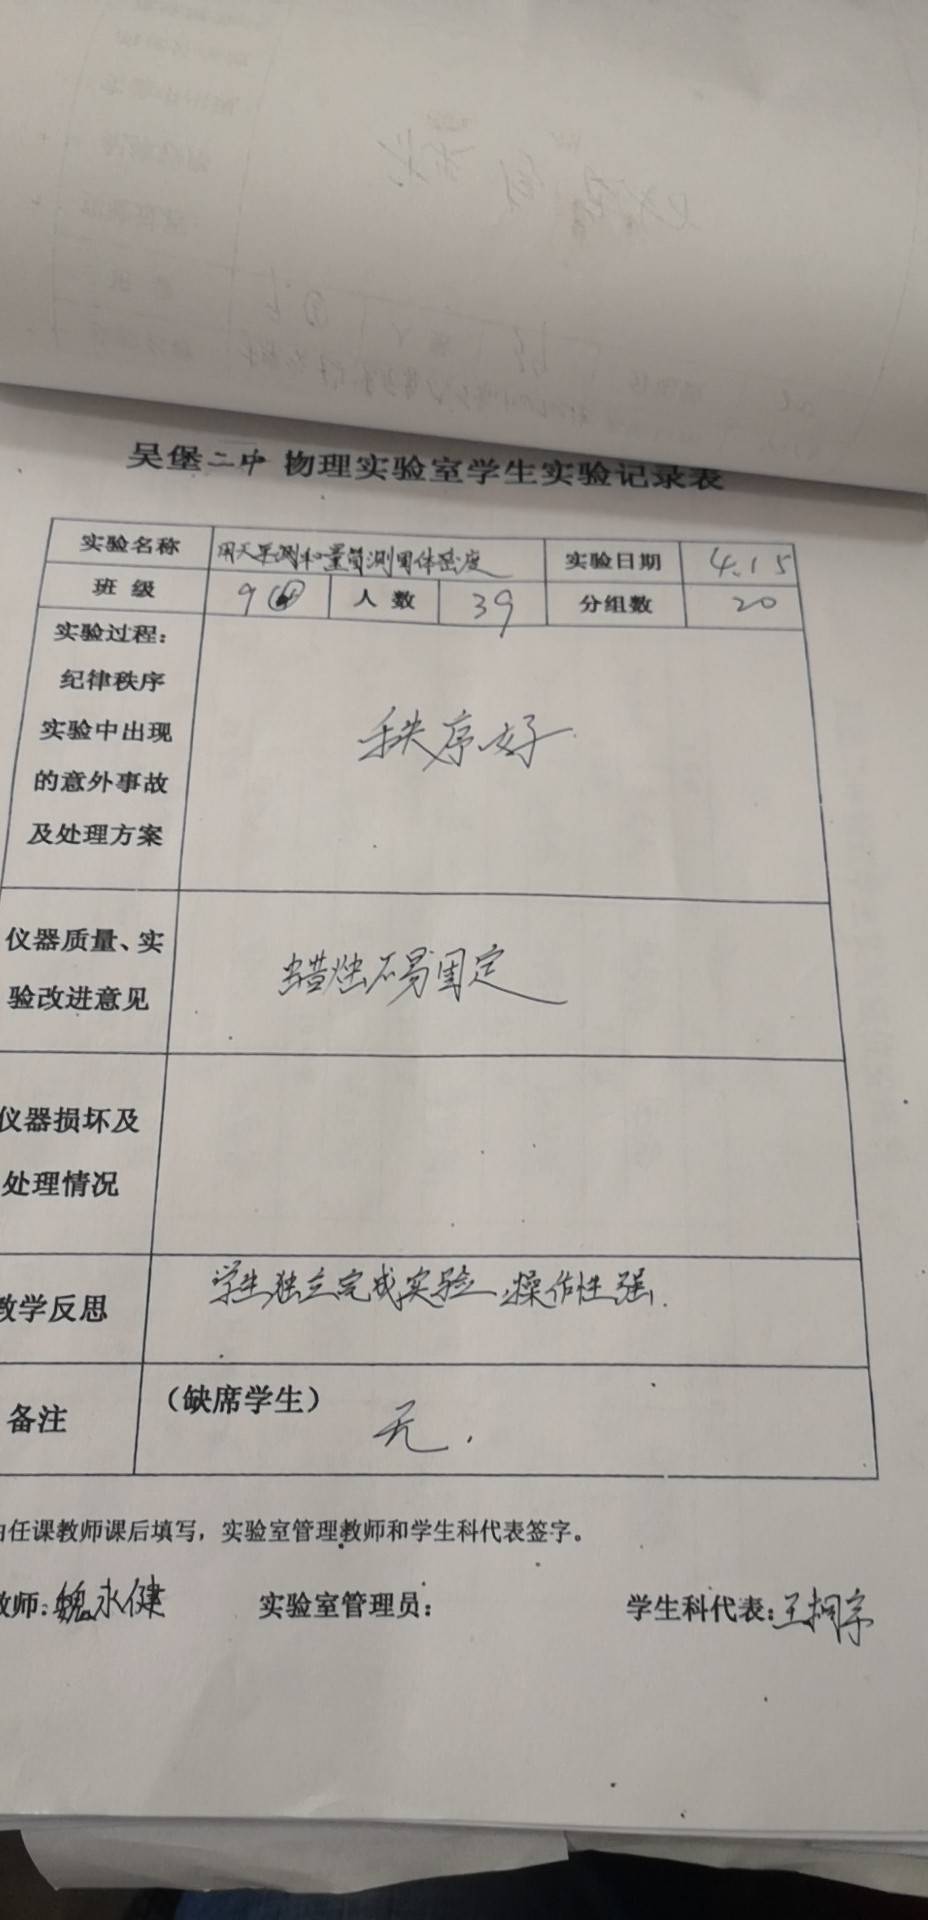 吴堡二中 物理实验室学生实验记录表
实验名称 用天平测和量筒测固体密度 实验日期 4.15
班 级 9 人 数 39 分组数 20
实验过程:
纪律秩序
实验中出现
的意外事故
及处理方案
秩序好
仪器质量、实
验改进意见
蜡烛不易固定
仪器损坏及
处理情况
教学反思 学生独立完成实验,操作性强.
备注 (缺席学生)
无.
由任课教师课后填写,实验室管理教师和学生科代表签字。
教师:魏永健 实验室管理员: 学生科代表:王